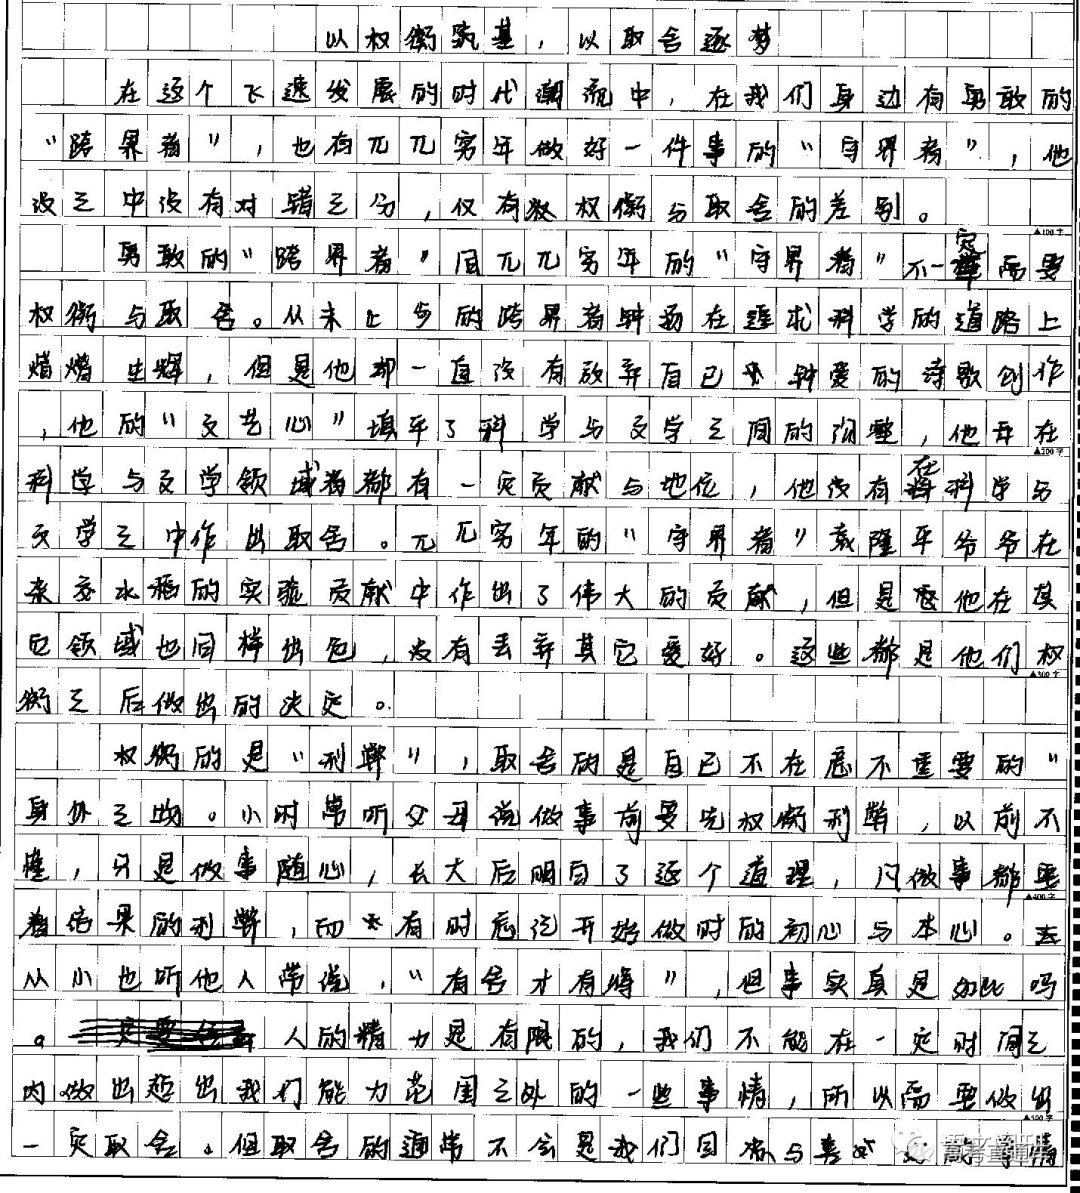 以权衡筑基，以取舍逐梦
在这个飞速发展的时代潮流中，在我们身边有勇敢的
“跨界者”，也有兀兀穷年做好一件事的“守界者”，他
没之中没有对错之分，仅有权衡与取舍的差别。
▲100字
勇敢的“跨界者”同兀兀穷年的“守界者”不一定需要
权衡与取舍。从未止步的跨界者钟扬在追求科学的道路上
熠熠生辉，但是他却一直没有放弃自己钟爱的诗歌创作
，他的“文艺心”填平了科学与文学之间的沟壑，他并在
▲200字
科学与文学领域都有一定贡献与地位，他没有在科学与
文学之中作出取舍。兀兀穷年的“守界者”袁隆平爷爷在
杂交水稻的实验贡献中作出了伟大的贡献，但是他在其
它领域也同样出色，没有丢弃其它爱好。这些都是他们权
▲300字
衡之后做出的决定。
权衡的是“利弊”，取舍的是自己不在意不重要的“
身外之物。小时常听父母说做事前要先权衡利弊，以前不
懂，只是做事随心，长大后明白了这个道理，凡做事都要
▲400字
看结果的利弊，而有时忘记开始做时的初心与本心。
从小也听他人常说，“有舍才有得”，但事实真是如此吗
。人的精力是有限的，我们不能在一定时间之
内做出超出我们能力范围之外的一些事情，所以需要做出
▲500字
一定取舍。但取舍的通常不会是我们同意与喜欢的事情
高考直通车